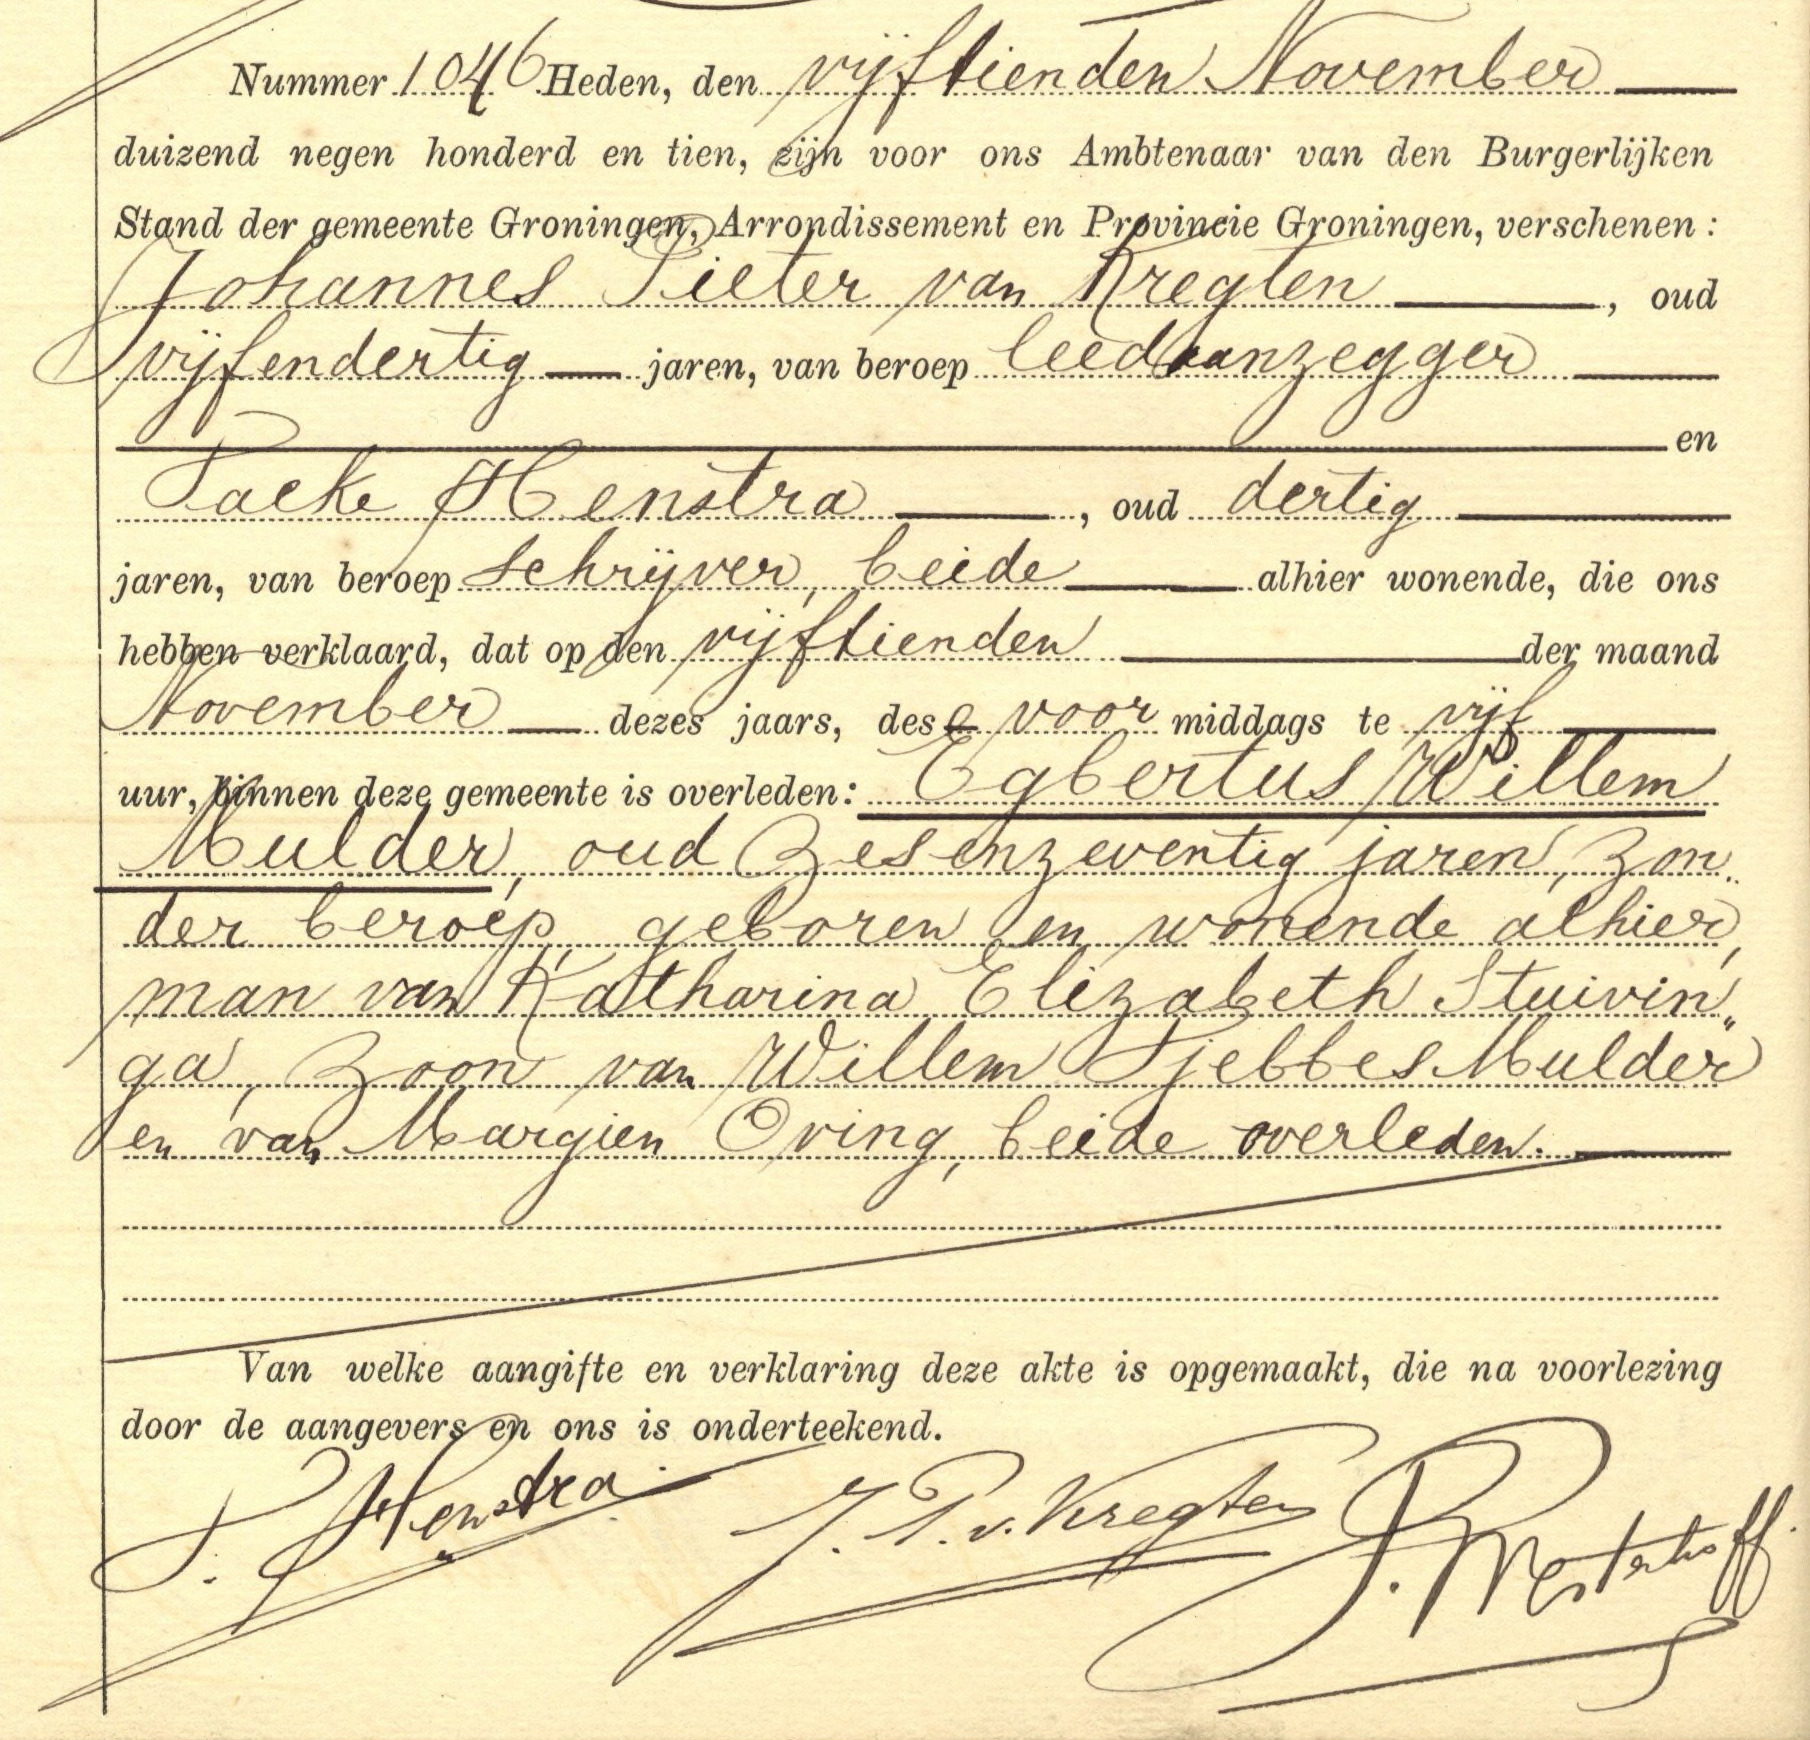 Nummer 1046 Heden, den vijftienden November
duizend negen honderd en tien, zijn voor ons Ambtenaar van den Burgerlijken
Stand der gemeente Groningen, Arrondissement en Provincie Groningen, verschenen :
Johannes Pieter van Kregten, oud
vijfendertig jaren, van beroep leedaanzegger
en
Taeke Henstra, oud dertig
jaren, van beroep schrijver, beide alhier wonende, die ons
hebben verklaard, dat op den vijftienden der maand
November dezes jaars, des voor middags te vijf
uur, binnen deze gemeente is overleden: Egbertus Willem
Mulder, oud zesenzeventig jaren, zon
der beroep, geboren en wonende alhier,
man van Katharina Elizabeth Stuivin"
ga, zoon van Willem Tjebbes Mulder
en van Margien Oving, beide overleden.
Van welke aangifte en verklaring deze akte is opgemaakt, die na voorlezing
door de aangevers en ons is onderteekend.
T. Henstra J. P. v. Kregten P. Westerhoff